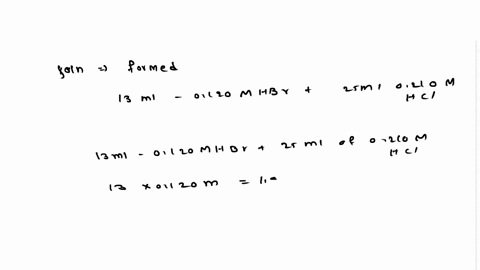 soln => formed
13 ml - 0.120 M HBr + 25ml 0.210 M
HCl
13ml - 0.120 M HBr + 25 ml of 0.210 M
HCl
13 x 0.120 m = 1.